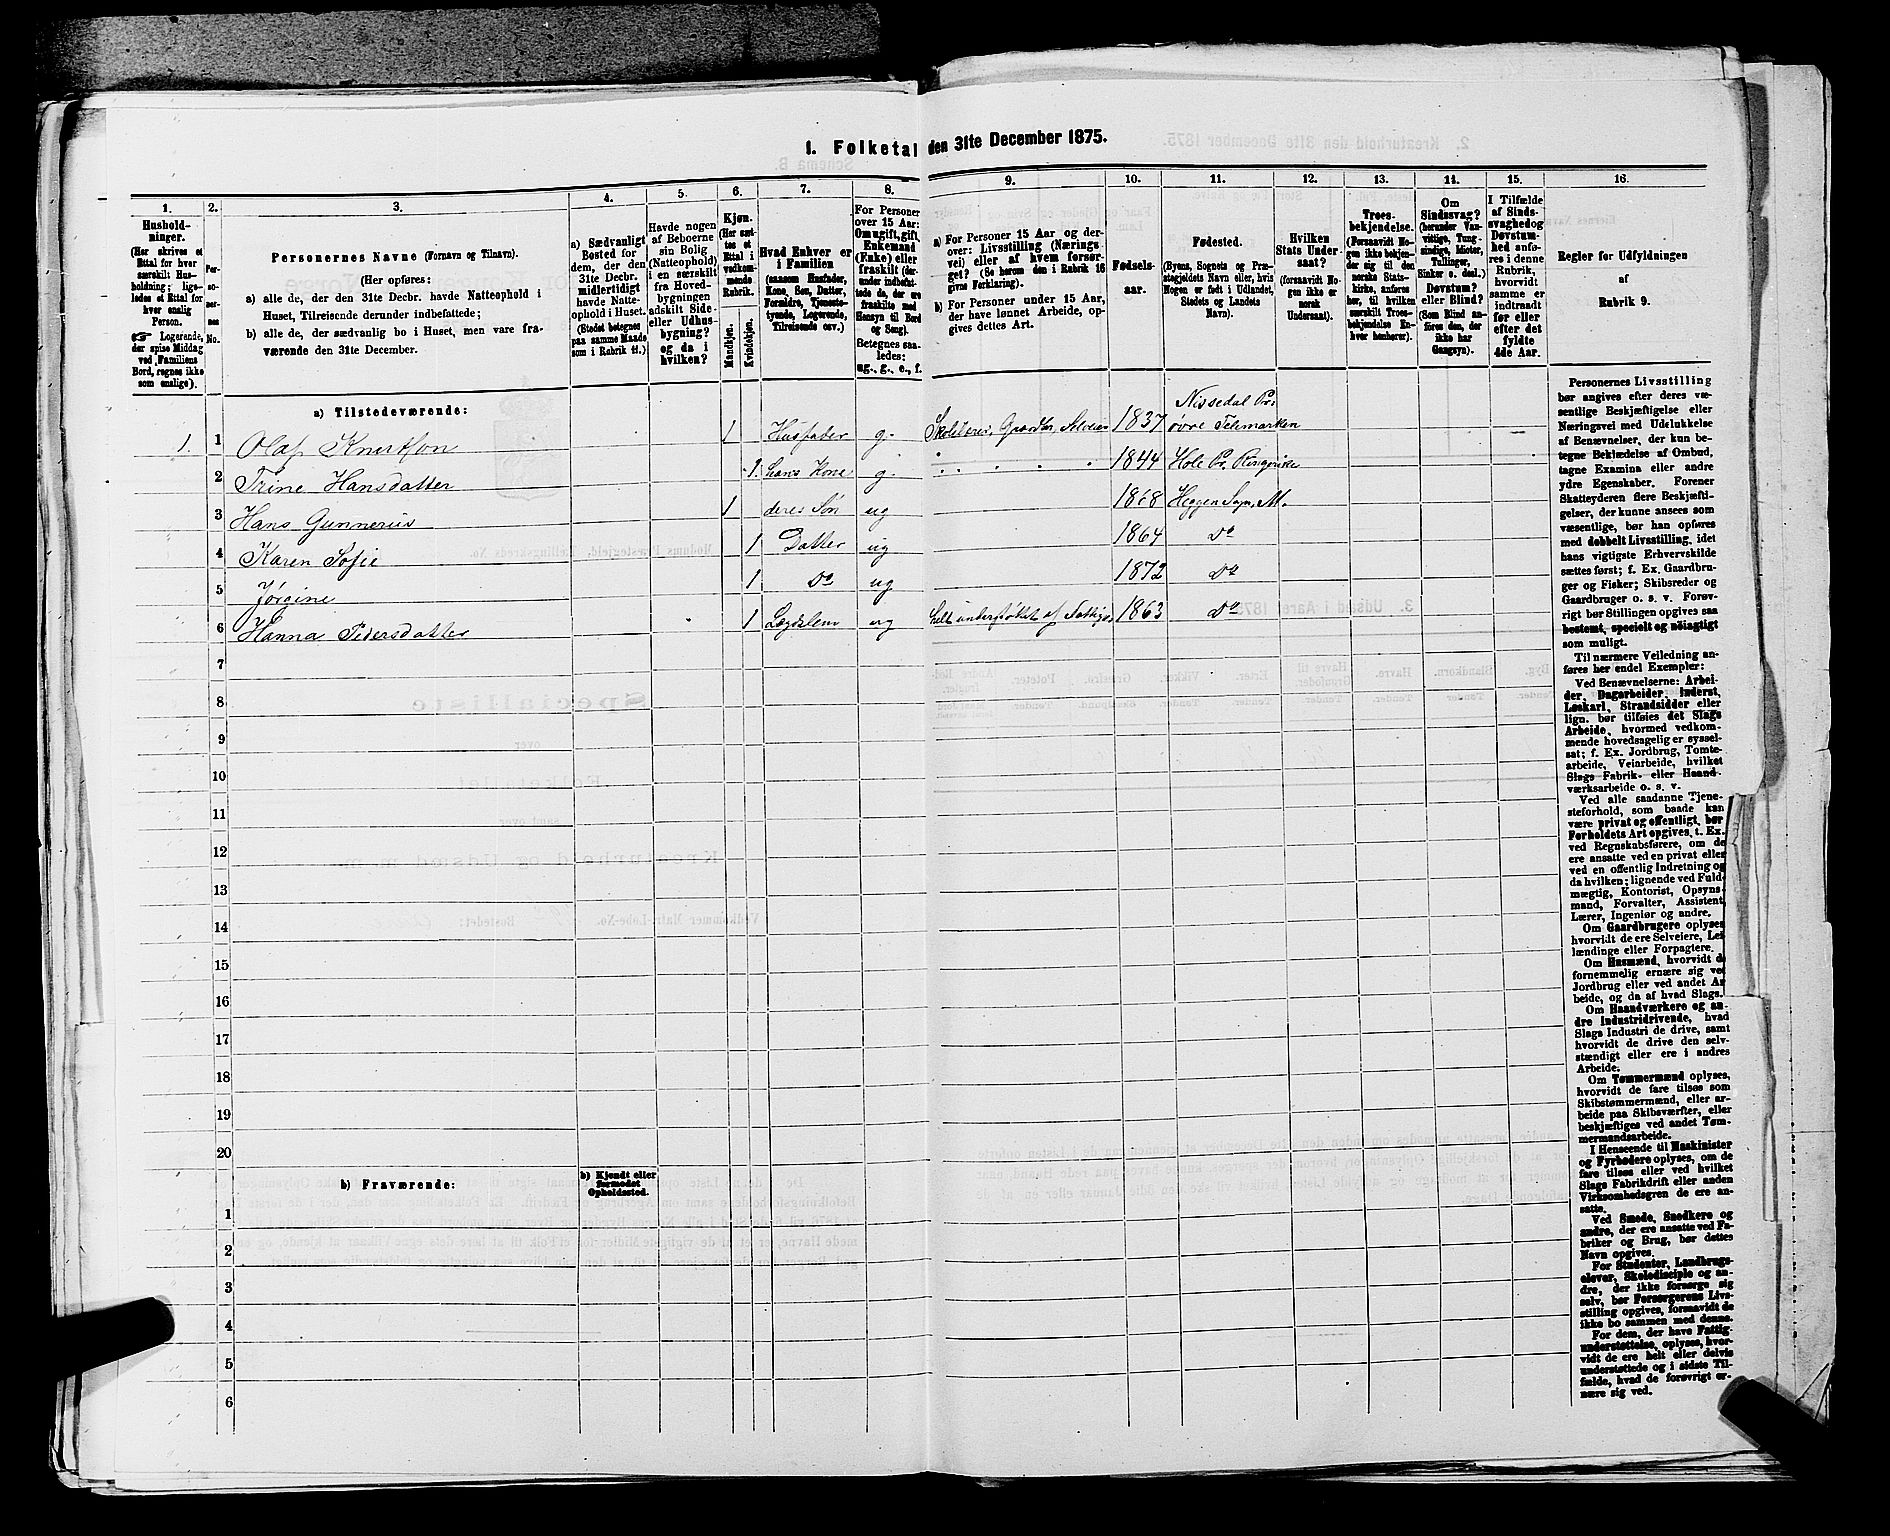 1. Folketal den 31te December 1875.
1. 2. 3. 4. 5. 6. 7. 8. 9. 10. 11. 12. 13. 14. 15. 16.
Hushold-
ninger.
(Her skrives et
Ettal for hver
særskilt Hus-
holdning; lige-
ledes et Ettal for
hver enslig
Person.
☞ Logerende,
der spise Middag
ved Familiens
Bord, regnes ikke
som enslige).
Per-
so-
ner-
nes
No.
Personernes Navne (Fornavn og Tilnavn).
(Her opføres:
a) alle de, der den 31te Decbr. havde Natteophold i
Huset, Tilreisende derunder indbefattede;
b) alle de, der sædvanlig bo i Huset, men vare fra-
værende den 31te December.
a) Sædvanligt
Bosted for
dem, der den
31te Decbr.
midlertidigt
havde Natte-
ophold i Huset.
(Stedet betegnes
paa samme Maade
som i Rubrik 11.)
Havde nogen
af Beboerne
sin Bolig
(Natteophold)
i en særskilt
fra Hoved-
bygningen
adskilt Side-
eller Udhus-
bygning?
og da i
hvilken?
Kjøn.
(Her sæt-
tes et
Ettal i
vedkom-
mende
Rubrik.
Mandkjøn.
Kvindekjøn.
Hvad Enhver er
i Familien
(saasom Husfader,
Kone, Søn, Datter,
Forældre, Tjeneste-
tyende, Logerende,
Tilreisende osv.)
For Personer
over 15 Aar:
Om ugift, gift,
Enkemand
(Enke) eller
fraskilt (der-
under indbefat-
tede de, der ere
fraskilte med
Hensyn til Bord
og Seng).
Betegnes saa-
ledes:
ug., g., e., f.
a) For Personer 15 Aar og der-
over: Livsstilling (Nærings-
vei) eller af hvem forsør-
get? (Se herom den i Rubrik 16
givne Forklaring).
b) For Personer under 15 Aar,
der have lønnet Arbeide, op-
gives dettes Art.
Fødsels-
aar.
Fødested.
(Byens, Sognets og Præ-
stegjeldets Navn eller, hvis
Nogen er født i Udlandet,
Stedets og Landets
Navn).
Hvilken
Stats Under-
saat?
(forsaavidt No-
gen ikke er
norsk
Undersaat).
Troes-
bekjendelse.
(Forsaavidt No-
gen ikke bekjen-
der sig til den
norske Stats-
kirke, anføres
her, til hvilken
særskilt Troes-
bekjendelse En-
hver henhører).
Om
Sindssvag?
(herunder Van-
vittige, Tung-
sindige, Idioter,
Tullinger,
Sinker o. desl.)
Døvstum?
eller Blind?
(Som Blind an-
føres den, der
ikke har
Gangsyn).
I Tilfælde
af Sinds-
svaghed og
Døvstum-
hed anfø-
res i denne
Rubrik,
hvorvidt
samme er
indtraadt
før eller
efter det
fyldte
4de Aar.
Regler for Udfyldningen
af
Rubrik 9.
a) Tilstedeværende:
1. 1 Olaf Knutson 1 Husfader g. Skolelærer, Gaardbr, Selveier 1837 Nissedal Pr: øvre Telemarken
2 Trine Hansdatter 1. hans Kone g. 1844 Hole Pr. Ringerike
3 Hans Gunnerius 1 deres Søn ug 1868 Heggen Sogn, M.
4 Karen Sofie 1 Datter ug 1864 Do
5 Jørgine 1 Do ug 1872 Do
6 Hanna Pedersdatter 1 Lægdslem ug helt understøttet af 1863 Do
7
8
9
10
11
12
13
14
15
16
17
18
19
20
b) Fraværende:
b) Kjendt eller
formodet
Opholdssted.
1
2
3
4
5
6
Personernes Livsstilling
bør angives efter deres væ-
sentlige Beskjæftigelse eller
Næringsvei med Udelukkelse
af Benævnelser, der kun be-
tegne Beklædelse af Ombud,
tagne Examina eller andre
ydre Egenskaber. Forener
Skatteyderen flere Beskjæfti-
gelser, der kunne ansees som
væsentlige, bør han opføres
med dobbelt Livsstilling, idet
hans vigtigste Erhvervskilde
sættes først; f. Ex. Gaardbru-
ger og Fisker; Skibsreder og
Gaardbruger o. s. v. Forøv-
rigt bør Stillingen opgives saa
bestemt, specielt og nøiagtigt
som muligt.
Til nærmere Veiledning an-
føres her endel Exempler:
Ved Benævnelserne: Arbei-
der, Dagarbeider, Inderst,
Løskarl, Strandsidder eller
lign. bør tilføies det Slags
Arbeide, hvormed vedkom-
mende hovedsagelig er syssel-
sat; f. Ex. Jordbrug, Tomte-
arbeide, Veiarbeide, hvilket
Slags Fabrik- eller Haand-
værksarbeide o. s. v.
Ved alle saadanne Tjene-
steforhold, som baade kan
være privat og offentligt, bør
Forholdets Art opgives, t. Ex.
ved Regnskabsførere, om de
ere ansatte ved en privat eller
ved en offentlig Indretning og
da hvilken; lignende ved Fuld-
mægtig, Kontorist, Opsyns-
mand, Forvalter, Assistent,
Lærer, Ingeniør og andre.
Om Gaardbrugere oplyses,
hvorvidt de ere Selveiere, Lei-
lændinge eller Forpagtere.
Om Husmænd, hvorvidt de
fornemmelig ernære sig ved
Jordbrug eller ved andet Ar-
beide, og da af hvad Slags.
Om Haandværkere og an-
dre Industridrivende, hvad
Slags Industri de drive, samt
hvorvidt de drive den selv-
stændigt eller ere i andres
Arbeide.
Om Tømmermænd oplyses,
hvorvidt de fare tilsøs som
Skibstømmermænd, eller ar-
beide paa Skibsværfter, eller
beskjæftiges ved andet Tøm-
mermandsarbeide.
I Henseende til Maskinister
og Fyrbødere oplyses, om de
fare tilsøs eller ved hvilket
Slags Fabrikdrift eller anden
Virksomhedsgren de ere an-
satte.
Ved Smede, Snedkere og
andre, der ere ansatte ved Fa-
briker og Brug, bør dettes
Navn opgives.
For Studenter, Landbrugs-
elever, Skoledisciple og an-
dre, der ikke forsørge sig
selv, bør Forsørgerens Livs-
stilling opgives, forsaavidt de
ikke bo sammen med denne.
For dem, der have Fattig-
understøttelse, oplyses, hvor-
vidt de ere helt eller delvis
understøttede og i sidste Til-
fælde, hvad de forøvrigt er-
nære sig ved.